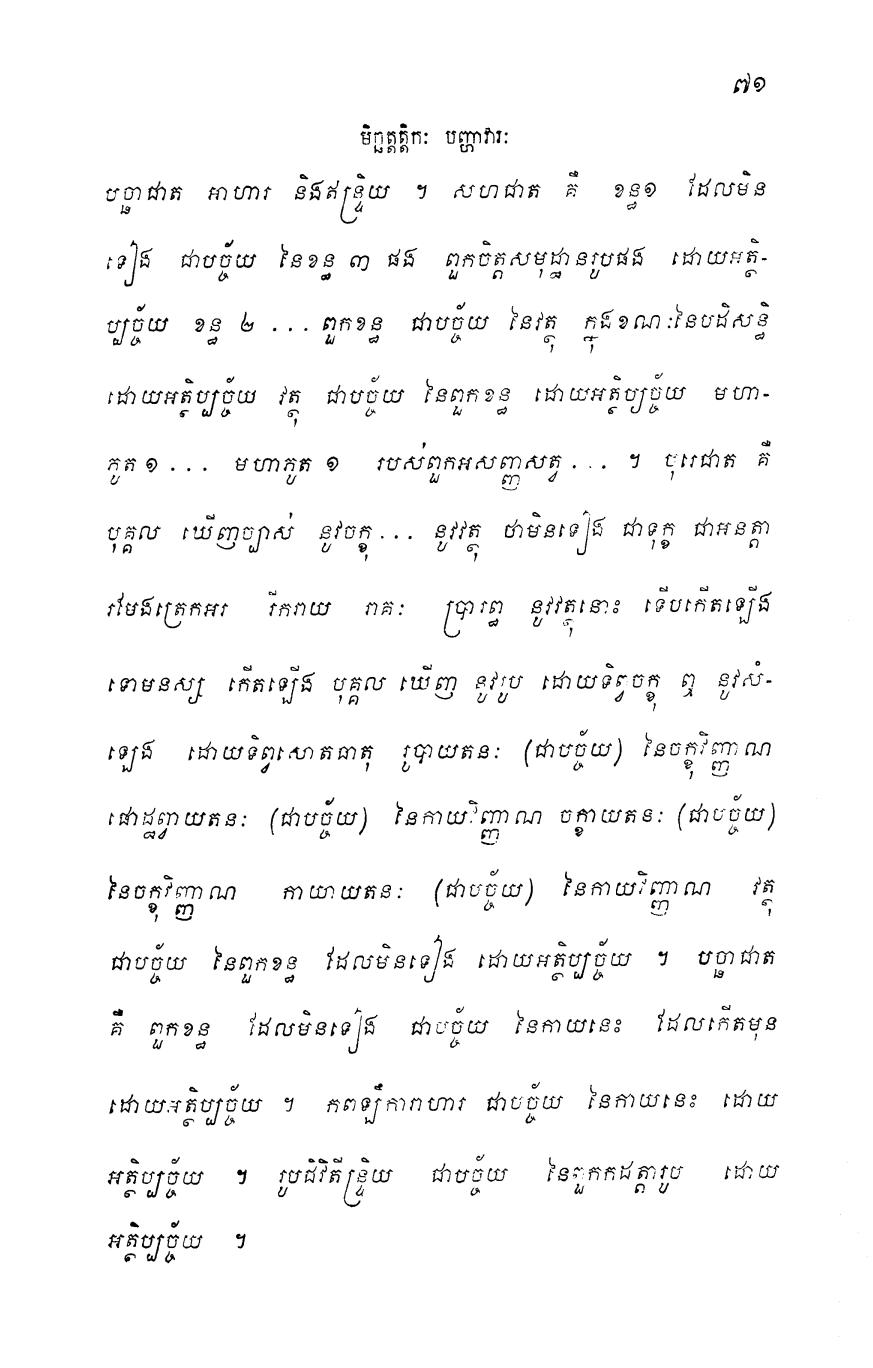 ៧១
មិច្ឆត្តត្តិកៈ បញ្ហាវារៈ
បច្ឆាជាត អាហារ និងឥន្ទ្រិយ ។ សហជាត គឺ ខន្ធ១ ដែលមិន
ទៀង ជាបច្ច័យ នៃខន្ធ ៣ ផង ពួកចិត្តសមុដ្ឋានរូបផង ដោយអត្ថិ-
ប្បច្ច័យ ខន្ធ ២ ... ពួកខន្ធ ជាបច្ច័យ នៃវត្ថុ ក្នុងខណៈនៃបដិសន្ធិ
ដោយអត្ថិប្បច្ច័យ វត្ថុ ជាបច្ច័យ នៃពួកខន្ធ ដោយអត្ថិប្បច្ច័យ មហា-
ភូត ១ ... មហាភូត ១ របស់ពួកអសញ្ញសត្វ ... ។ បុរេជាត គឺ
បុគ្គល ឃើញច្បាស់ នូវចក្ខុ ... នូវវត្ថុ ថាមិនទៀង ជាទុក្ខ ជាអនត្តា
រមែងត្រេកអរ រីករាយ រាគៈ ប្រារព្ធ នូវវត្ថុនោះ ទើបកើតឡើង
ទោមនស្ស កើតឡើង បុគ្គល ឃើញ នូវរូប ដោយទិព្វចក្ខុ ឮ នូវសំ-
ឡេង ដោយទិព្វសោតធាតុ រូបាយតនៈ (ជាបច្ច័យ) នៃចក្ខុវិញ្ញាណ
ផោដ្ឋព្វាយតនៈ (ជាបច្ច័យ) នៃកាយវិញ្ញាណ ចក្ខាយតនៈ (ជាបច្ច័យ)
នៃចក្ខុវិញ្ញាណ កាយាយតនៈ (ជាបច្ច័យ) នៃកាយវិញ្ញាណ វត្ថុ
ជាបច្ច័យ នៃពួកខន្ធ ដែលមិនទៀង ដោយអត្ថិប្បច្ច័យ ។ បច្ឆាជាត
គឺ ពួកខន្ធ ដែលមិនទៀង ជាបច្ច័យ នៃកាយនេះ ដែលកើតមុន
ដោយអត្ថិប្បច្ច័យ ។ កពឡីការាហារ ជាបច្ច័យ នៃកាយនេះ ដោយ
អត្ថិប្បច្ច័យ ។ រូបជីវិតិន្ទ្រិយ ជាបច្ច័យ នៃពួកកដត្តារូប ដោយ
អត្ថិប្បច្ច័យ ។